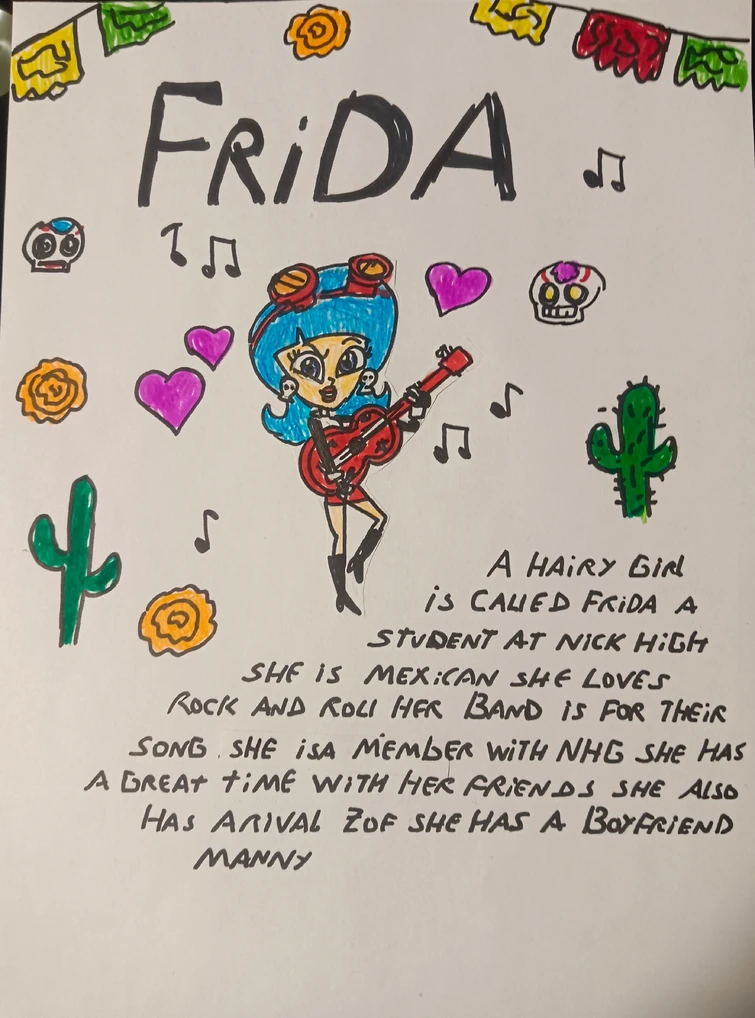 FRiDA
A HAiRY GiRL
iS CALLED FRiDA A
STUDENT AT NICK HiGH
SHE iS MEXiCAN SHE LOVES
ROCK AND ROLL HER BAND iS FOR THEiR
SONG. SHE iSA MEMBER WiTH NHG SHE HAS
A GREAT TiME WiTH HER FRiENDS SHE ALSO
HAS ARIVAL ZOE SHE HAS A BOYFRiEND
MANNY